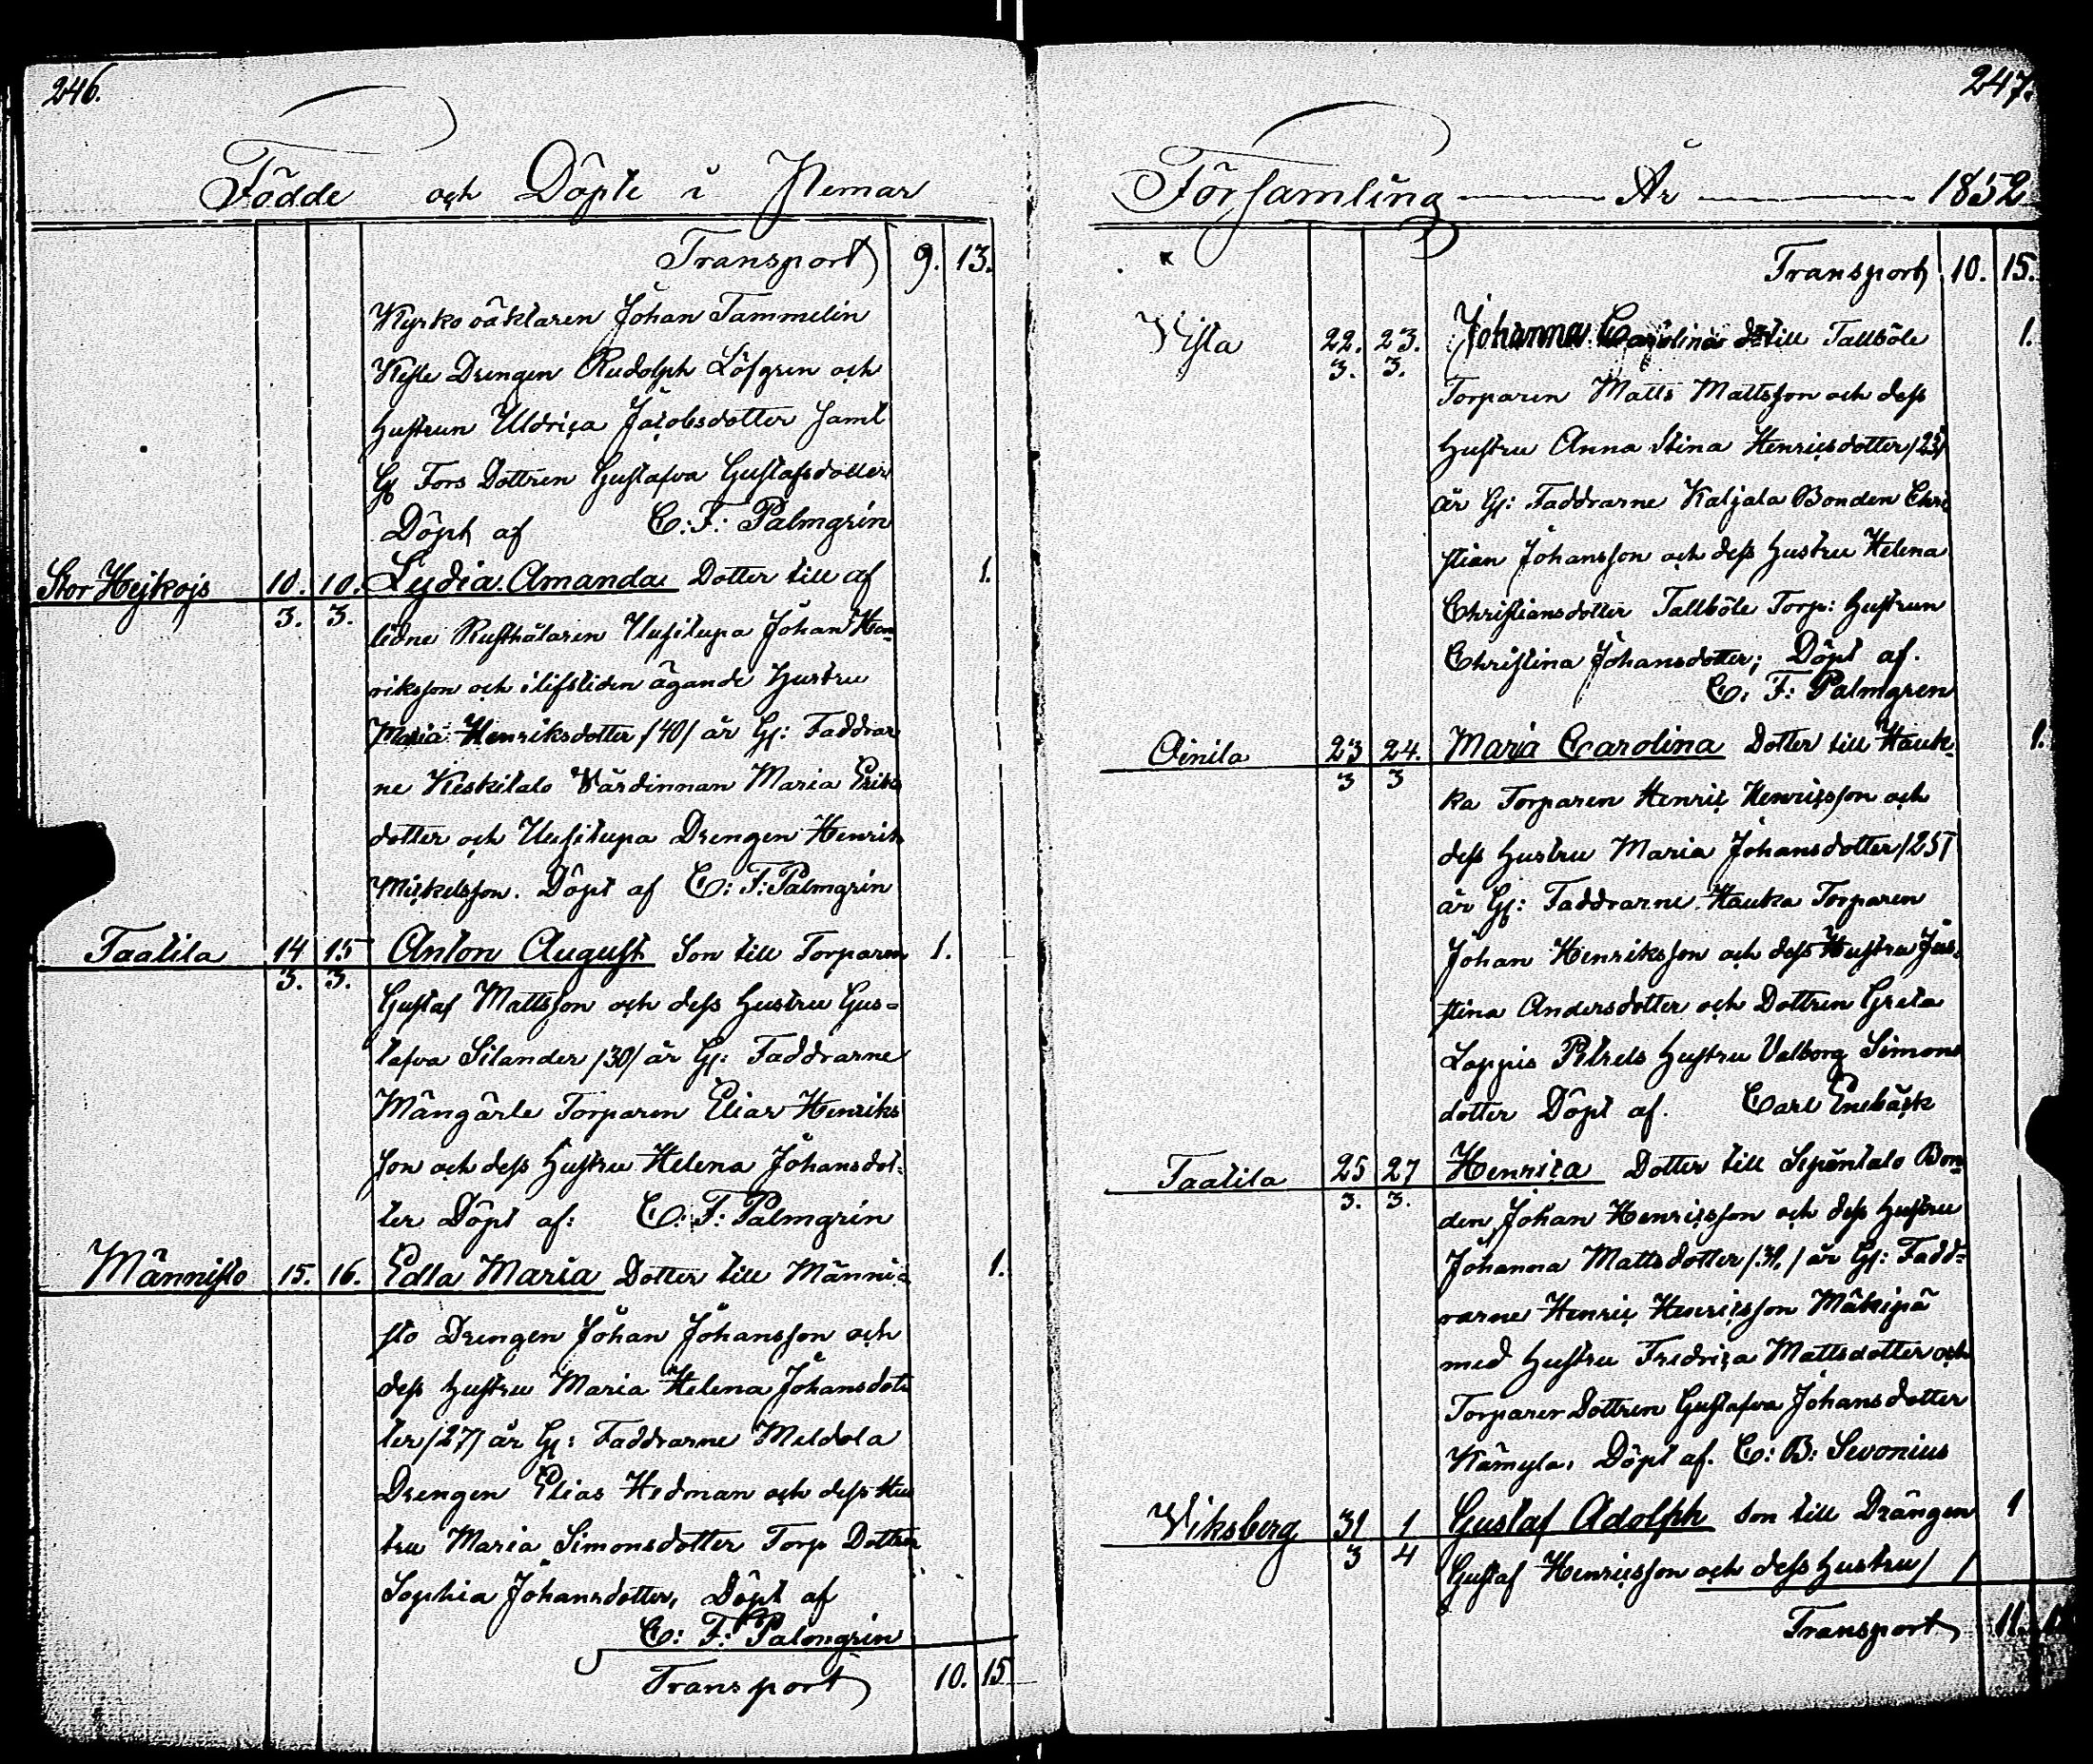 246.
Födde och Döpte i Nemar
Transport 9. 13.
Kyrkoväktaren Johan Tammelin
Drengen Rudolph Löfgren och
hustrun Uldrica Jacobsdotter samt
Fors Dottren Gustafva Gustafsdotter
Döpt af C: F: Palmgrén
Stor Hejkojs 10. 10. Lydia Amanda Dotter till af 1.
3. 3.
lidne Rusthålaren Uusitupa Johan Hen
riksson och i lifstiden ägande Hustru
Maria Henriksdotter /40/ år Gl: Faddrar
ne Keskitalo Värdinnan Maria Eriks
dotter och Uusitupa Drengen Henrik
Mickelsson. Döpt af C: F: Palmgrén
Taatila 14 15 Anton August Son till Torparen 1.
3. 3.
Gustaf Mattsson och dess Hustru Gus=
tafva Silander /30/ år Gl: Faddrarne
Torparen Elias Henriks
son och dess Hustru Helena Johansdot=
ter Döpt af: C: F: Palmgrén
Männisto 15. 16. Edla Maria Dotter till Männi= 1.
sto Drengen Johan Johansson och
dess hustru Maria Helena Johansdot
ter /27/ år Gl: Faddrarne Meldola
Drengen Elias Hedman och dess Hus
tru Maria Simonsdotter Torp Dottren
Sophia Johansdotter, Döpt af
C: F: Palmgrén
Transport 10. 15
247.
Församling År 1852
Transport 10. 15.
Vista 22. 23. Johanna Carolina dr till Tallböle 1.
3. 3.
Torparen Matts Mattsson och dess
hustru Anna Stina Henricsdotter /23/
år Gl: Faddrarne Katjala Bonden Chri
stian Johansson och dess hustru Helena
Christiansdotter Tallböle Torp: hustrun
Christina Johansdotter; Döpt af.
C. F: Palmgren
Oinila 23 24. Maria Carolina Dotter till Hauk= 1.
3 3
ka Torparen Henric Henricsson och
dess hustru Maria Johansdotter /25/
år Gl: Faddrarne Hauka Torparen
Johan Henriksson och dess Hustru Jus=
stina Andersdotter och Dottren Greta
Loppis Petrels hustru Valborg Simons
dotter Döpt af. Carl Enebäck
Taatila 25 27 Henrica Dotter till Sepäntalo Bon=
3. 3.
den Johan Henricsson och dess hustru
Johanna Mattsdotter /31./ år Gl: Fadd=
rarne Henric Henricsson Mäkipä
med hustru Fredrica Mattsdotter och
Torparer Dottren Gustafva Johansdotter
Kämyla. Döpt af. C: B: Sevonius
Viksberg 31 1 Gustaf Adolph Son till Drängen 1
3 4
Gustaf Henricsson och dess hustru /
Transport 11.